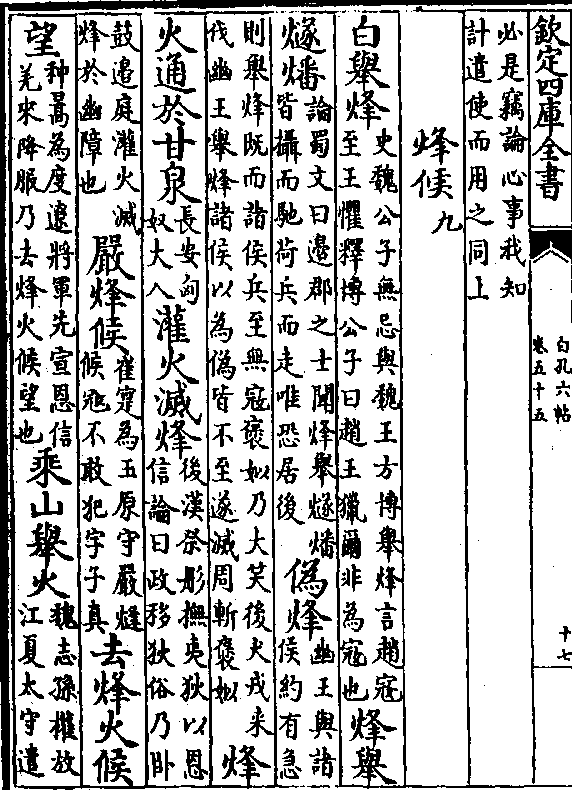 欽定四庫全書
白孔六帖
卷五十五
十七
必是竊論心事我知
計遣使而用之同上
烽候九
白舉烽
史魏公子無忌與魏王方博舉烽言趙寇
至王懼釋博公子曰趙王獵爾非為寇也
烽舉
燧燔
論蜀文曰邉郡之士聞烽舉燧燔
皆攝而馳荷兵而走唯恐居後
偽烽
幽王與諸
侯約有急
則舉烽既而諸侯兵至無寇褒姒乃大笑後犬戎来
伐幽王舉烽諸侯以為偽皆不至遂滅周斬褒姒
烽
火通於甘泉
長安匈
奴大入
灌火滅烽
後漢祭肜撫夷狄以恩
信論曰政移狄俗乃卧
鼓邉庭灌火滅
烽於幽障也
嚴烽候
崔寔為五原守嚴烽
候寇不敢犯字子真
去烽火候
望
种暠為度遼將軍先宣恩信
羌来降服乃去烽火候望也
乘山舉火
魏志孫權放
江夏太守遣